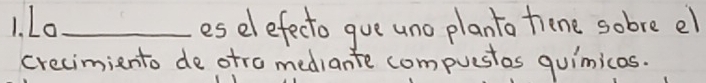 1. La ________ es el efecto que una planta tiene sobre el
crecimiento de otra mediante compuestos químicos.